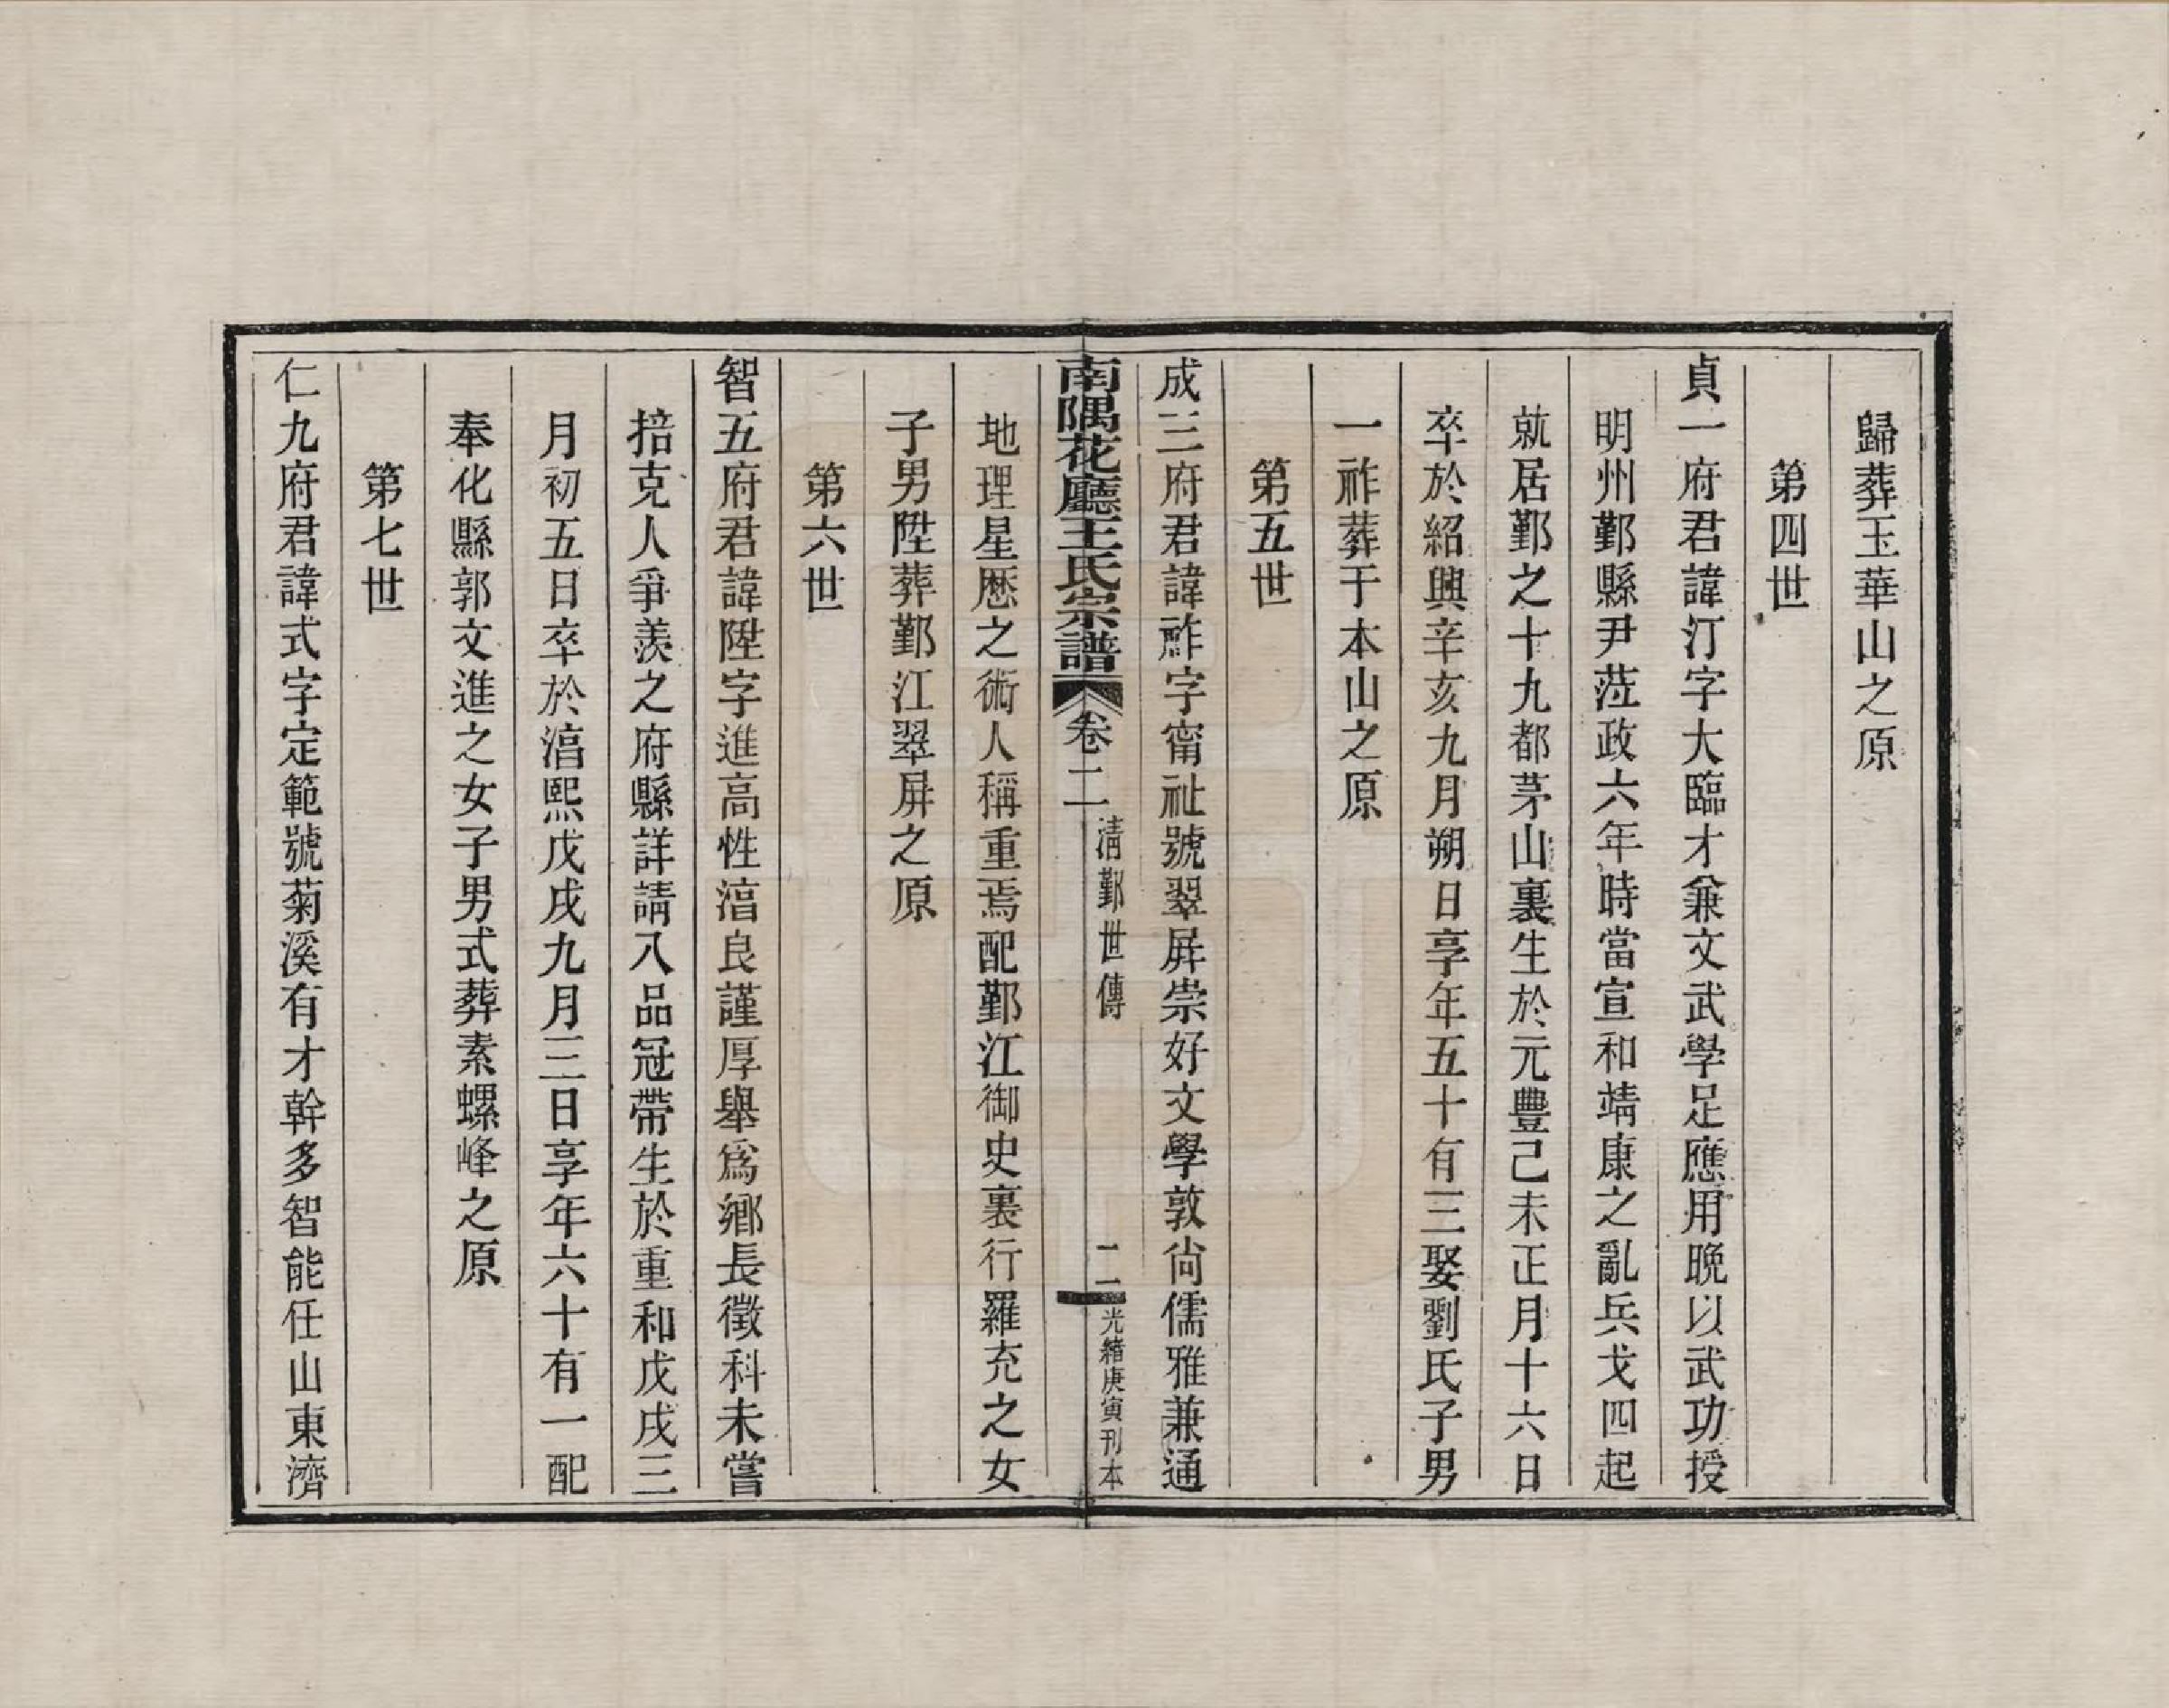 歸葬玉華山之原
第四世
貞一府君諱汀字大臨才兼文武學足應用晚以武功授
明州鄞縣尹蒞政六年時當宣和靖康之亂兵戈四起
就居鄞之十九都茅山裏生於元豐己未正月十六日
卒於紹興辛亥九月朔日享年五十有三娶劉氏子男
一祚葬于本山之原
第五世
成三府君諱祚字甯祉號翠屏崇好文學敦尙儒雅兼通
南隅花廳王氏宗譜
卷二
淸鄞世傳
二
光緖庚寅刊本
地理星厯之術人稱重焉配鄞江御史裏行羅充之女
子男陞葬鄞江翠屏之原
第六世
智五府君諱陞字進高性湻良謹厚舉爲鄕長徵科未嘗
掊克人爭羨之府縣詳請八品冠帶生於重和戊戌三
月初五日卒於湻熙戊戌九月三日享年六十有一配
奉化縣郭文進之女子男式葬素螺峰之原
第七世
仁九府君諱式字定範號菊溪有才幹多智能任山東濟